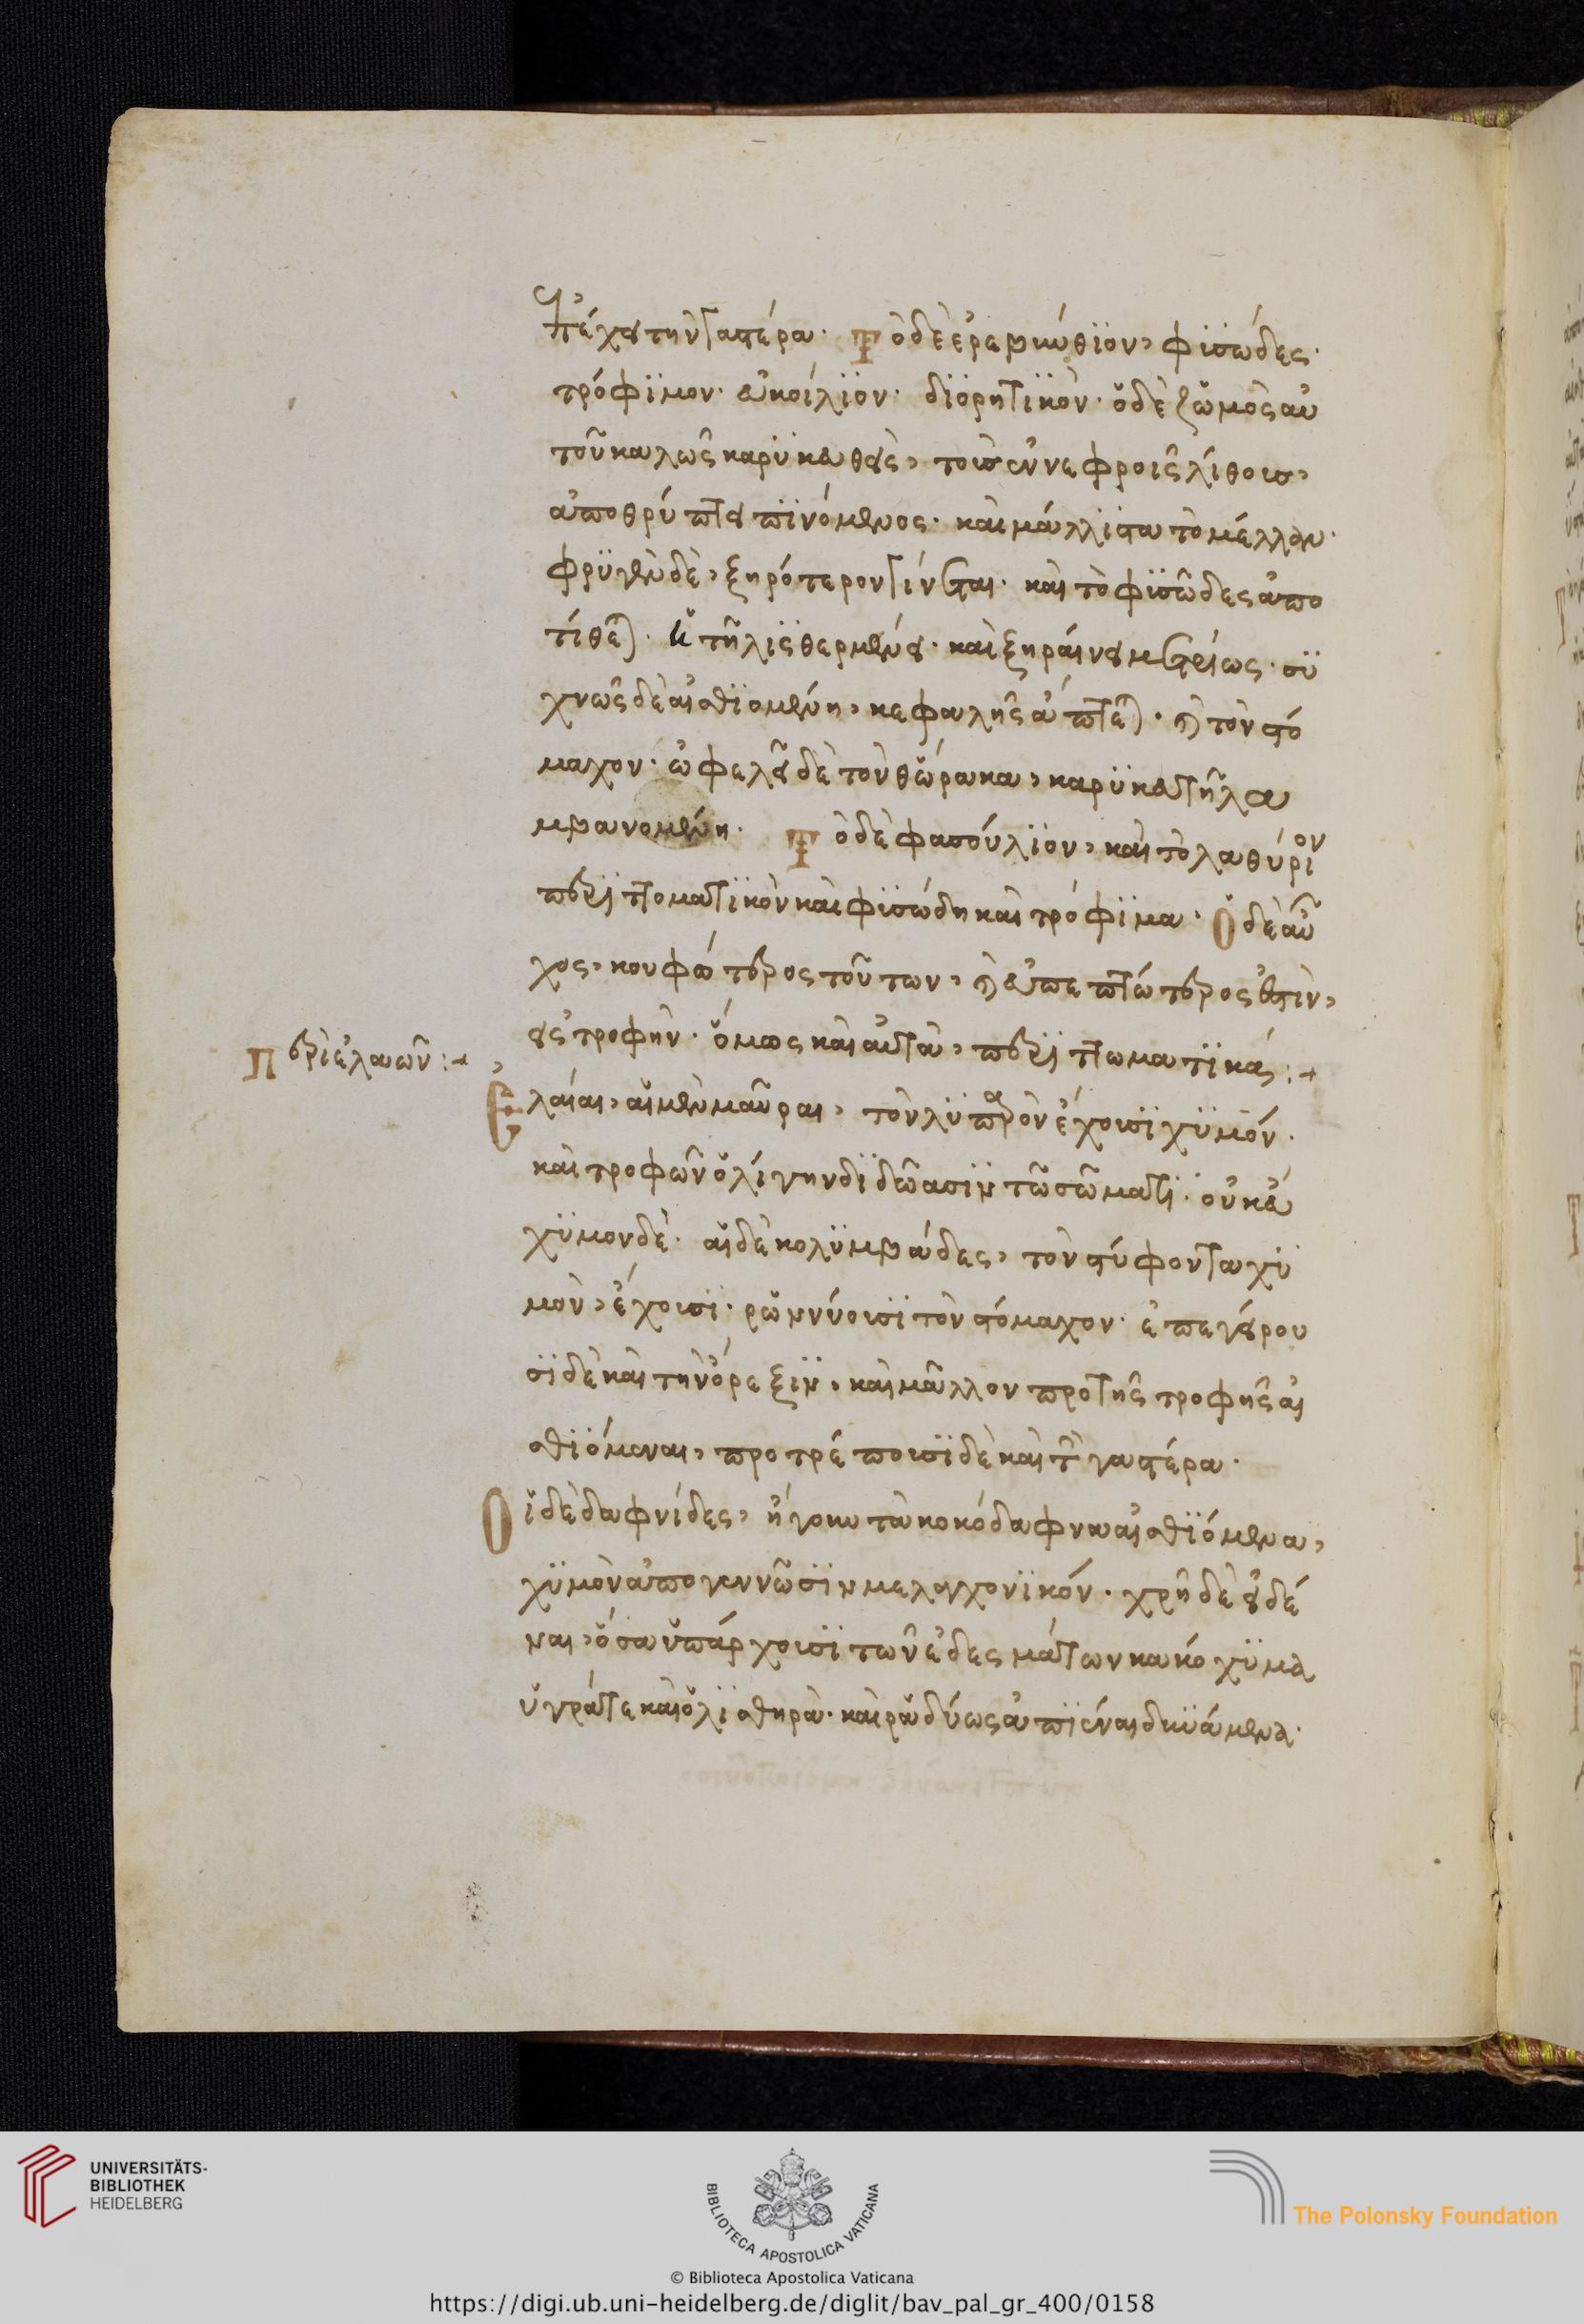 ἐπέχει τὴν γαστέρα. Τὸ δὲ ἐρεβίνθϊον, φϊσώδες.
τρόφϊμον. εὐκοίλϊον. δϊορητϊκόν. ὁ δὲ ζωμὸς αὐ
τοῦ καλῶς καρϋκευθεὶς, τοὺς ἐν νεφροῖς λίθους,
ἀποθρύπτει πϊνόμενος. καὶ μάλλιστα τὸ μέλλαν.
φρϋγὲν δὲ, ξηρότερον γίνεται. καὶ τὸ φϊσῶδες ἀπο
τίθεται. Ἡ τῆλις θερμαίνει. καὶ ξηραίνει μετρίως. σϋ
χνῶς δὲ αἰσθϊομένη, κεφαλῆς ἅπτεται. καὶ τὸν στό
μαχον. ὠφελεῖ δὲ τὸν θώρακα, καρϋκευτὴ λα
μβανομένη. Τὸ δὲ φασούλϊον, καὶ τὸ λαθύριον
περϊττοματϊκὸν καὶ φϊσώδη καὶ τρόφϊμα. Ὁ δὲ αὖ
χος, κουφώτερος τούτων, καὶ εὐπεπτώτερος ἐστὶν,
εἰς τροφὴν. ὅμως καὶ αὐτὰ, περϊττωματϊκά:+
Περὶ ἐλαιῶν:+
Ἐλαίαι, αἱ μὲν μαῦραι, τὸν λϋπαρὸν ἔχουσϊ χϋμόν.
καὶ τροφὼν ὀλίγην δϊδῶασϊν τῶ σώματϊ. οὐκ εὔ
χϋμον δὲ. αἱ δὲ κολϋμβάδες, τὸν στύφοντα χϋ
μὸν, ἔχουσϊ. ρωννύουσϊ τὸν στόμαχον. ἐπεγείρου
σϊ δὲ καὶ τὴν ὄρεξϊν, καὶ μᾶλλον προ τῆς τροφῆς αἰ
σθϊόμεναι, προτρέπουσϊ δὲ καὶ τὴν γαστέρα.
Οἱ δὲ δαφνίδες, ἤγουν τὰ κοκόδαφνα αἰσθϊόμενα,
χϋμὸν ἀπογεννῶσϊν μελαγχονϊκόν. χρὴ δὲ εἰδέ
ναι, ὅσα ὑπάρχουσϊ τῶν ἐδεσμάτων κακόχϋμα
ὑγρά τε καὶ ὀλϊσθηρὰ. καὶ ραδύως ἀπϊέναι δυνάμενα.
UNIVERSITÄTS-
BIBLIOTHEK
HEIDELBERG
BIBLIOTECA APOSTOLICA VATICANA
The Polonsky Foundation
© Biblioteca Apostolica Vaticana
https://digi.ub.uni-heidelberg.de/diglit/bav_pal_gr_400/0158